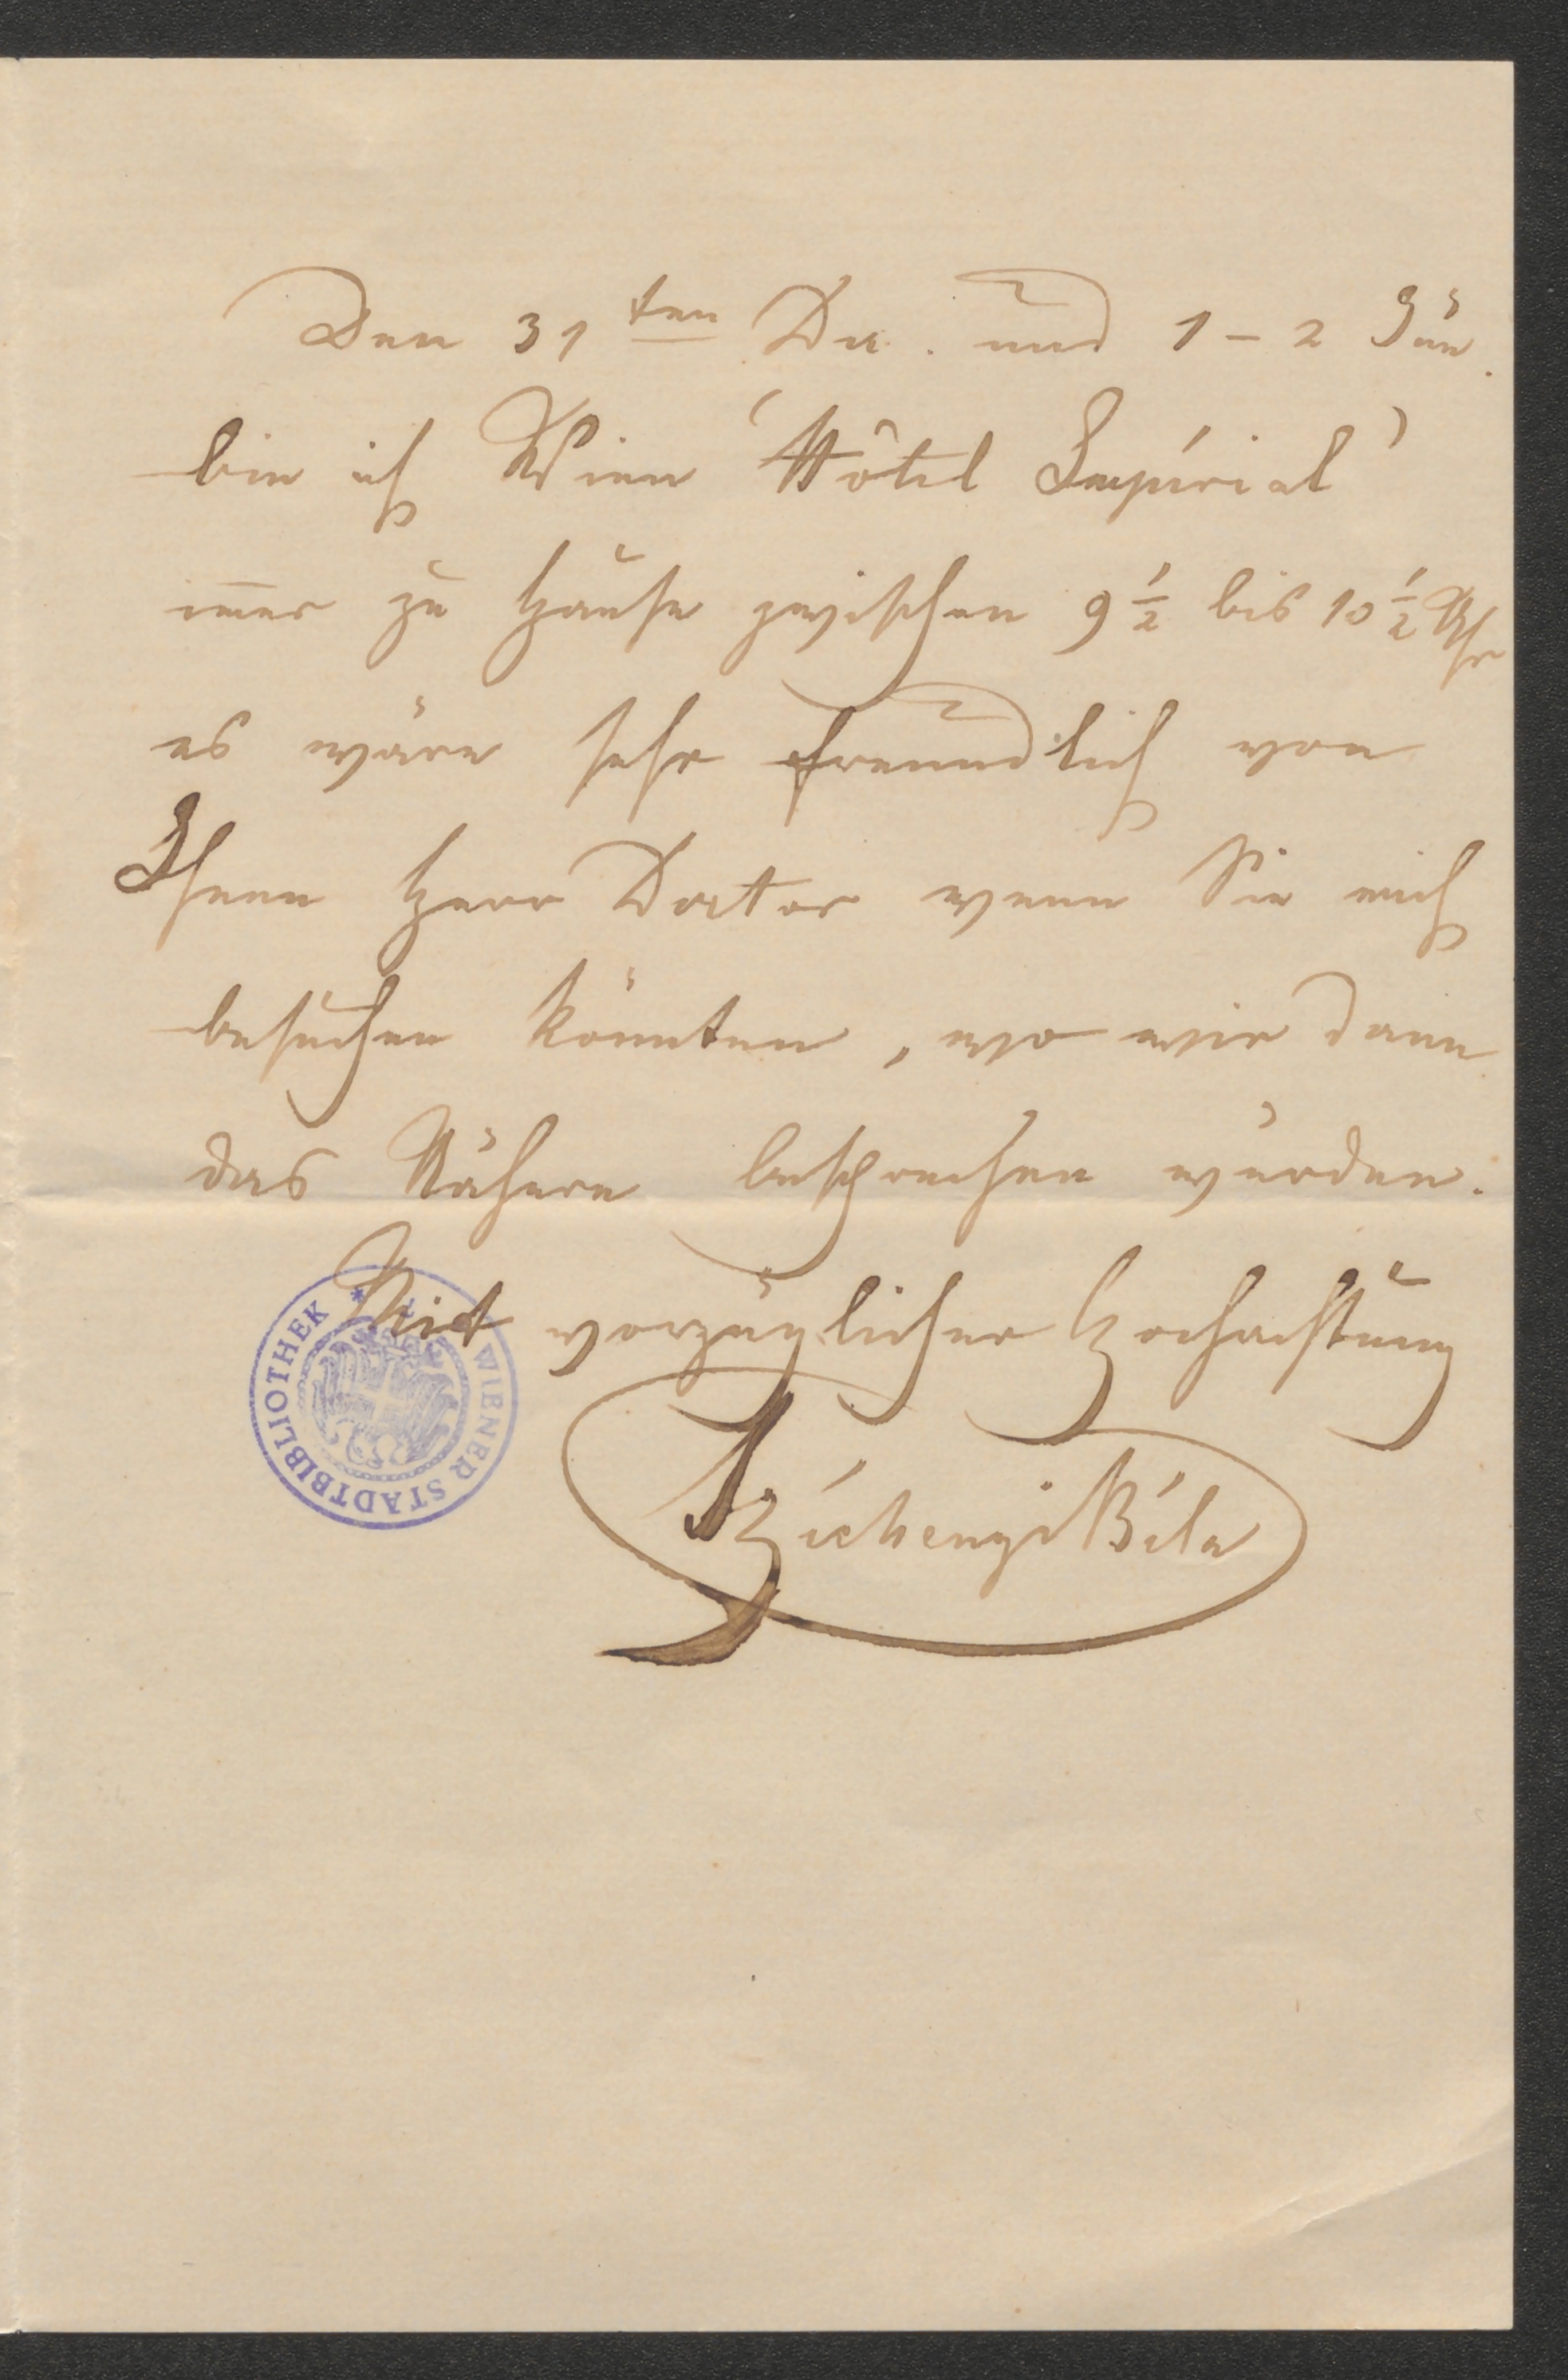 Den 31ten Dec. und 1–2 Jän.
bin ich Wien (Hôtel Impérial)
im̅er zu Hause zwischen 9½ bis 10½ Uhr
es wäre sehr freundlich von
Ihnen Herr Doctor wenn Sie mich
besuchen könnten, wo wir dann
das Nähere besprechen würden.
Mit vorzüglicher Hochachtung
Széchenyi Béla
WIENER STADTBIBLIOTHEK